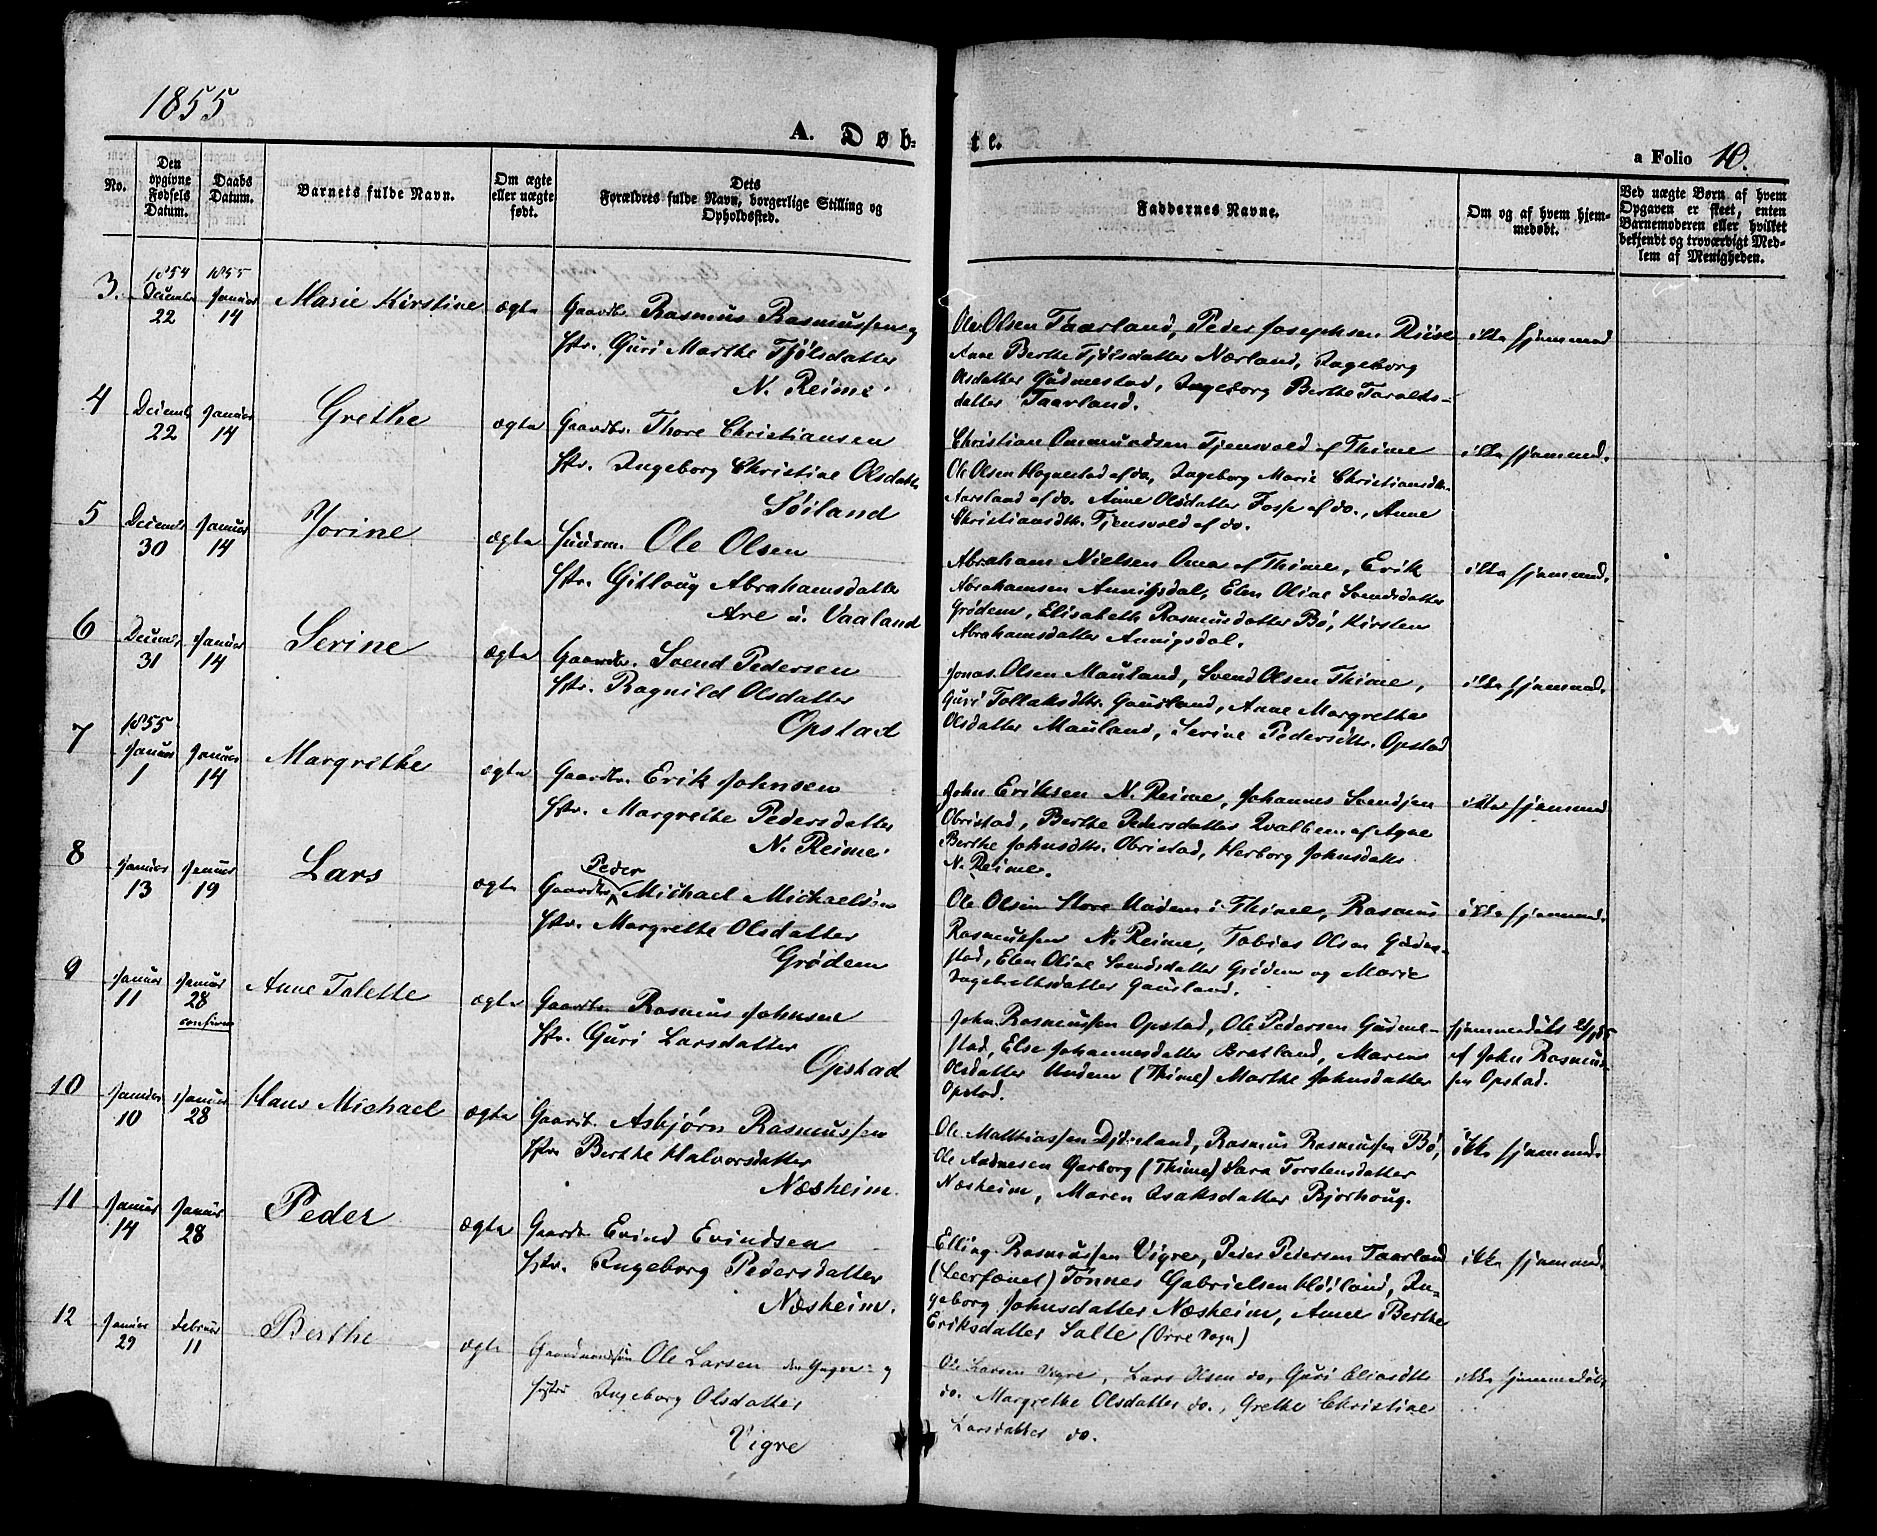 1855
A. Døb-
te.
a Folio 10.
No.
Den opgivne Fødsels Datum.
Daabs Datum.
Barnets fulde Navn.
Om ægte eller uægte født.
Dets Forældres fulde Navn, borgerlige Stilling og Opholdssted.
Faddernes Navne.
Om og af hvem hjemmedøbt.
Ved uægte Børn af hvem Opgaven er skeet, enten Barnemoderen eller hvilket bekjendt og troværdigt Medlem af Menigheden.
3. 1854 December 22 1855 Januar 14 Marie Kirstine ægte
Gaardbr. Rasmus Rasmussen og
Hstr. Guri Marthe Tjølsdatter
N. Reime
Ole Olsen Taarland, Peder Josephsen
Anne Berthe Tjølsdatter Nærland, Ingeborg
Olsdatter Gudmestad, Ingeborg Berthe Taralds-
datter Taarland.
ikke hjemmed
4 Decemb. 22 Januar 14 Grethe ægte
Gaardbr. Thore Christiansen
Hstr. Ingeborg Christine Olsdatte
Søiland
Christian Ommundsen Tjensvold af Thime
Ole Olsen Hognestad af do, Ingeborg Marie Christiansdtr.
Aarsland af do. Anne Olsdatter Fosse af do., Anne
Christiansdtr. Tjensvold af do.
ikke hjemmed.
5 Decemb. 30 Januar 14 Jorine ægte
Huusm. Ole Olsen
Hstr. Gitloug Abrahamsdatter
Are u. Vaaland
Abraham Nielsen Oma af Thime, Erik
Abrahamsen Aniigsdal, Elen Oline Svendsdatter
Grødem, Elisabeth Rasmusdatter Bø, Kirsten
Abrahamsdatter Anniqsdal.
ikke hjemmed.
6 Decemb. 31 Januar 14 Serine ægte
Gaardbr. Svend Pedersen
Hstr. Ragnild Olsdatter
Opstad
Jonas Olsen Mauland, Svend Olsen Thime,
Guri Tollaksdtr. Gausland, Anne Margrethe
Olsdatter Mauland, Serine Pedersdtr. Opstad
ikke hjemmed.
7 1855 Januar 1 Januar 14 Margrethe ægte
Gaardbr. Erik Johnsen
Hstr. Margrethe Pedersdatter
N. Reime
John Eriksen N. Reime, Johannes Svendsen
Obristad, Berthe Pedersdatter Qvalbein af Ogne
Berthe Johnsdtr. Obristad, Herborg Johnsdatter
N. Reime.
ikke hjemmed
8 Januar 13 Januar 19 Lars ægte
Peder
Gaardbr. Michael Michaelsen
Hstr. Margrethe Olsdatter
Grødem
Ole Olsen Store Undem i Thime, Rasmus
Rasmussen N. Reime, Tobias Olsen Gudme-
stad, Elen Oline Svendsdatter Grødem og Marie
Ingebretsdatter Gausland.
ikke hjemmed.
9 Januar 11 Januar 28 confirm Anne Talette ægte
Gaardbr. Rasmus Johnsen
Hstr. Guri Larsdatter
Opstad
John Rasmussen Opstad, Ole Pedersen Gudme-
stad, Else Johannesdatter Bratland, Maren
Olsdatter Undem (Thime) Marthe Johnsdatter
Opstad.
hjemmedøbt
af John Rasmus-
sen Opstad.
10 Januar 10 Januar 28 Hans Michael ægte
Gaardb. Asbjørn Rasmussen
Hstr. Berthe Halvorsdatter
Næsheim.
Ole Mathiassen Djüveland, Rasmus Rasmussen Bø,
Ole Aadnesen Garborg (Thime) Sara Torstensdatter
Næsheim, Maren Isaksdatter Bjorhoug.
ikke hjemmed.
11 Januar 14 Januar 28 Peder ægte
Gaardb. Evind Evindsen
Hstr. Ingeborg Pedersdatter
Næsheim.
Elling Rasmussen Vigre, Peder Pedersen Taarland
Tønnes Gabrielsen Høiland, In-
geborg Johnsdatter Næsheim, Anne Berthe
Eriksdatter Salte (Orre Sogn)
ikke hjemmed.
12 Januar 29 Februar 11 Berthe ægte
Ole Larsen den Yngre og
Hustru Ingeborg Olsdatter
Vigre
Ole Larsen Vigre, Lars Olsen do, Guri Eliasdtr
do. Margrethe Olsdatter do., Grethe Christine
Larsdatter do.
ikke hjemmedøbt